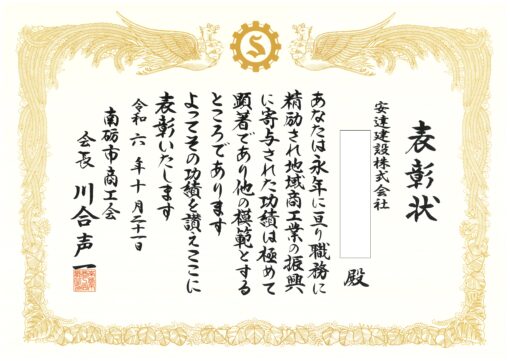 表彰状
安達建設株式会社
殿
あなたは永年に亘り職務に
精励され地域商工業の振興
に寄与された功績は極めて
顕著であり他の模範とする
ところであります
よってその功績を讃えここに
表彰いたします
令和六年十月二十一日
南砺市商工会
会長 川合声一